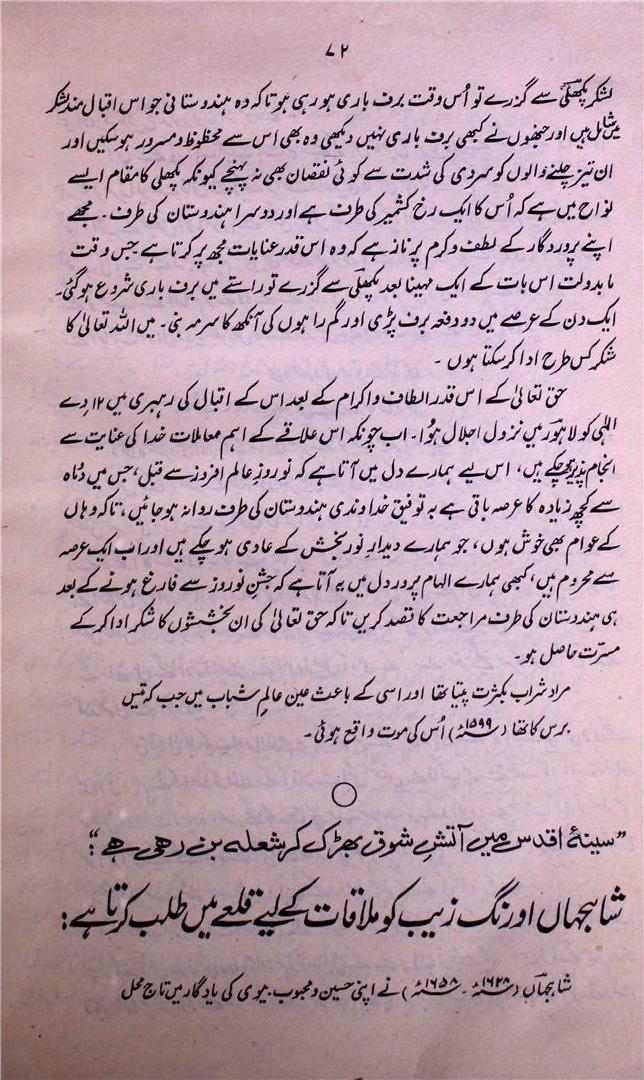 ۷۲
لشکر پکھلی سے گزرے تو اُس وقت برف باری ہو رہی ہو تاکہ وہ ہندوستانی جو اس اقبال مند لشکر
میں شامل ہیں اور جنھوں نے کبھی برف باری نہیں دیکھی وہ بھی اس سے محظوظ و مسرور ہو سکیں اور
ان تیز چلنے والوں کو سردی کی شدت سے کوئی نقصان بھی نہ پہنچے کیونکہ پکھلی کا مقام ایسے
نواح میں ہے کہ اُس کا ایک رخ کشمیر کی طرف ہے اور دوسرا ہندوستان کی طرف۔ مجھے
اپنے پروردگار کے لطف و کرم پر ناز ہے کہ وہ اس قدر عنایات مجھ پر کرتا ہے جس وقت
مابدولت اس بات کے ایک مہینا بعد پکھلی سے گزرے تو راستے میں برف باری شروع ہو گئی۔
ایک دن کے عرصے میں دو دفعہ برف پڑی اور گم راہوں کی آنکھ کا سرمہ بنی۔ میں اللہ تعالیٰ کا
شکر کس طرح ادا کر سکتا ہوں۔
حق تعالیٰ کے اس قدر الطاف و اکرام کے بعد اس کے اقبال کی رہبری میں ۱۲ دے
الٰہی کو لاہور میں نزول اجلال ہوا۔ اب چونکہ اس علاقے کے اہم معاملات خدا کی عنایت سے
انجام پذیر ہو چکے ہیں، اس لیے ہمارے دل میں آتا ہے کہ نوروزِ عالم افروز سے قبل، جس میں دو ماہ
سے کچھ زیادہ کا عرصہ باقی ہے بہ توفیق خداوندی ہندوستان کی طرف روانہ ہو جائیں، تاکہ وہاں
کے عوام بھی خوش ہوں، جو ہمارے دیدارِ نور بخش کے عادی ہو چکے ہیں اور اب ایک عرصہ
سے محروم ہیں، کبھی ہمارے الہام پرور دل میں یہ آتا ہے کہ جشنِ نوروز سے فارغ ہونے کے بعد
ہی ہندوستان کی طرف مراجعت کا قصد کریں تاکہ حق تعالیٰ کی ان بخششوں کا شکر ادا کر کے
مسرت حاصل ہو۔
مراد شراب بکثرت پیتا تھا اور اسی کے باعث عین عالمِ شباب میں جب کہ تیس
برس کا تھا (۱۵۹۹ء) اُس کی موت واقع ہوئی۔
"سینۂ اقدس میں آتشِ شوق بھڑک کر شعلہ بن رہی ہے"؛
شاہجہاں اورنگ زیب کو ملاقات کے لیے قلعے میں طلب کرتا ہے:
شاہجہاں (۱۶۲۸ء۔ ۱۶۵۸ء) نے اپنی حسین و محبوب بیوی کی یادگار میں تاج محل